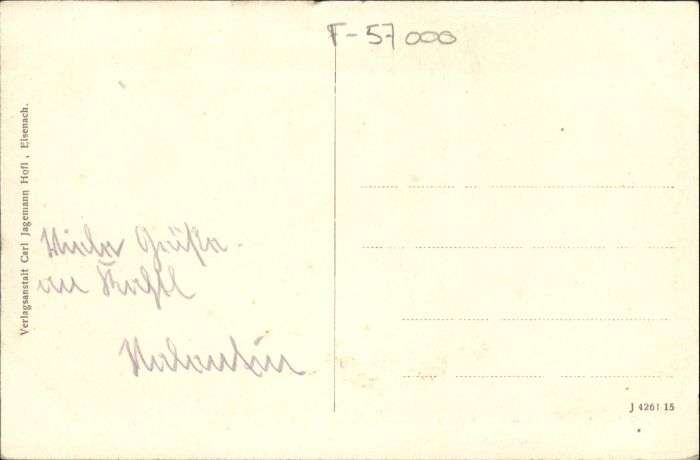 F-57000
Verlagsanstalt Carl Jagemann Hofl., Eisenach.
Viele Grüße
an
Valentin
J 4261 15